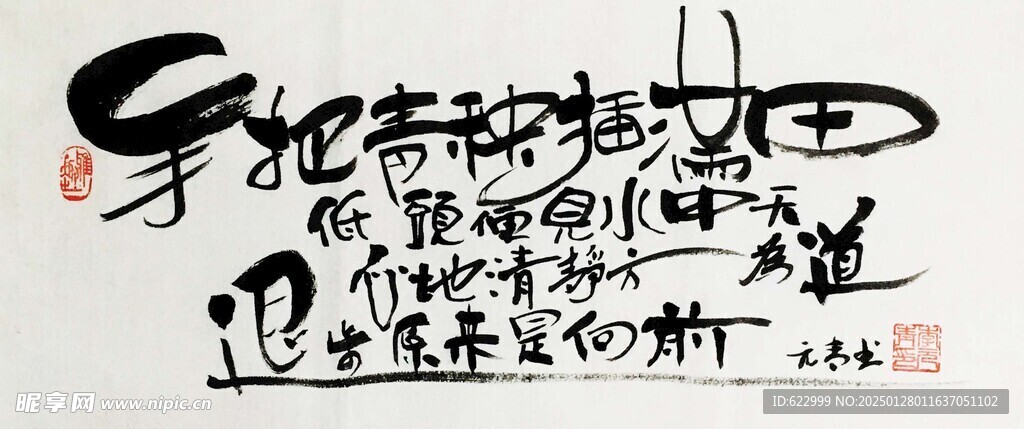 手把青秧插满田
低頭便見水中天
心地清静方為道
退步原来是向前
元青书
昵享网 www.nipic.cn
ID:622999 NO:20250128011637051102